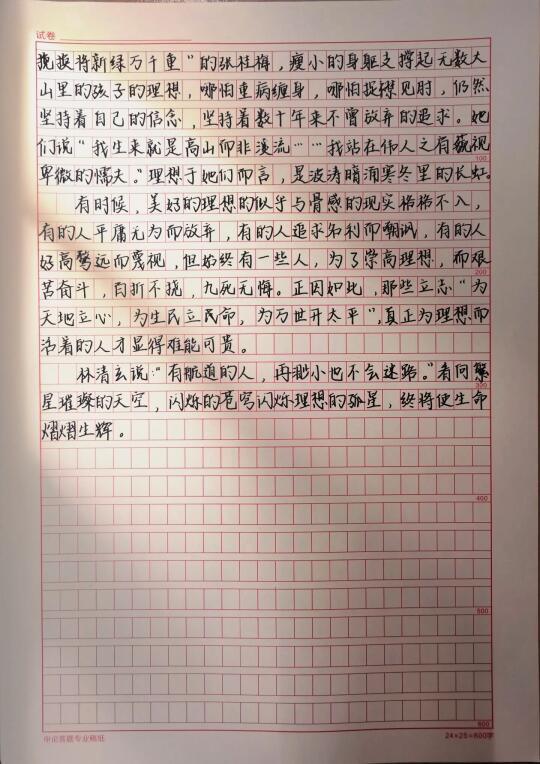 试卷
挽换将新绿万千重”的张桂梅，瘦小的身躯支撑起无数大
山里的孩子的理想，哪怕重病缠身，哪怕捉襟见肘，仍然
坚持着自己的信念，坚持着数十年来不曾放弃的追求。她
们说“我生来就是高山而非溪流……我站在伟人之肩藐视
卑微的懦夫。”理想于她们而言，是波涛暗涌寒冬里的长虹。
100
有时候，美好的理想的似乎与骨感的现实格格不入，
有的人平庸无为而放弃，有的人追求名利而嘲讽，有的人
好高骛远而蔑视，但始终有一些人，为了崇高理想，而艰
200
苦奋斗，百折不挠，九死无悔。正因如此，那些立志“为
天地立心，为生民立民命，为万世开太平”，真正为理想而
活着的人才显得难能可贵。
林清玄说：“有航道的人，再渺小也不会迷路。”看向繁
300
星璀璨的天空，闪烁的苍穹闪烁理想的孤星，终将使生命
熠熠生辉。
400
500
600
申论答题专业稿纸
24×25=600字